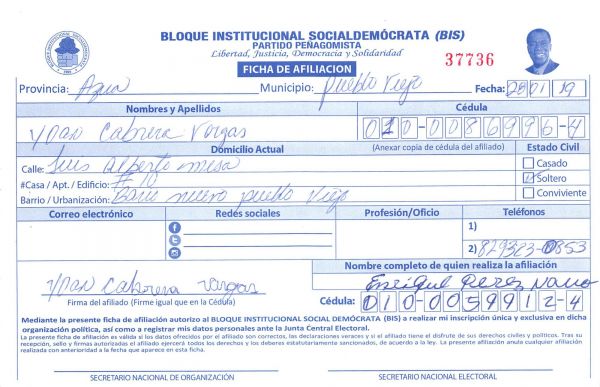 BLOQUE INSTITUCIONAL SOCIALDEMÓCRATA (BIS)
PARTIDO PEÑAGOMISTA
Libertad, Justicia, Democracia y Solidaridad
37736
FICHA DE AFILIACION
Provincia: Azua Municipio: Pueblo Viejo Fecha: 28 01 19
Nombres y Apellidos Cédula
Yoan Cabrera Vargas 010-0086996-4
Domicilio Actual (Anexar copia de cédula del afiliado) Estado Civil
Calle: Luis Alberto mesa Casado
#Casa / Apt. / Edificio: # 10 Soltero
Barrio / Urbanización: Barrio nuevo pueblo Viejo Conviviente
Correo electrónico Redes sociales Profesión/Oficio Teléfonos
1)
2) 829323-0853
Nombre completo de quien realiza la afiliación
Yoan Cabrera Vargas Enrique Perez
Firma del afiliado (Firme igual que en la Cédula) Cédula: 010-0059912-4
Mediante la presente ficha de afiliación autorizo al BLOQUE INSTITUCIONAL SOCIAL DEMÓCRATA (BIS) a realizar mi inscripción única y exclusiva en dicha
organización política, así como a registrar mis datos personales ante la Junta Central Electoral.
La presente ficha de afiliación es válida si los datos ofrecidos por el afiliado son correctos, las declaraciones veraces y si el titular disfruta de sus derechos civiles y políticos. Tras su
recepción, sello y firmas autorizadas el afiliado ejercerá todos los derechos y los deberes estatutariamente sancionados, de acuerdo a la ley. La presente afiliación anula cualquier afiliación
realizada con anterioridad a la fecha que aparece en esta ficha.
SECRETARIO NACIONAL DE ORGANIZACIÓN SECRETARIO NACIONAL ELECTORAL